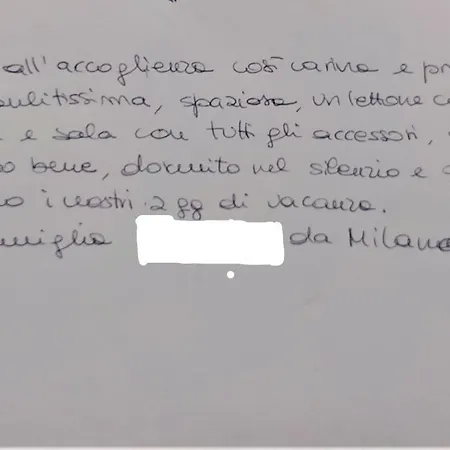 all'accoglienza così carina e pr
pulitissima, spaziosa, un lettone c
e sala con tutti gli accessori,
bene, dormito nel silenzio e
o i nostri 2 gg di vacanza.
miglia da Milano